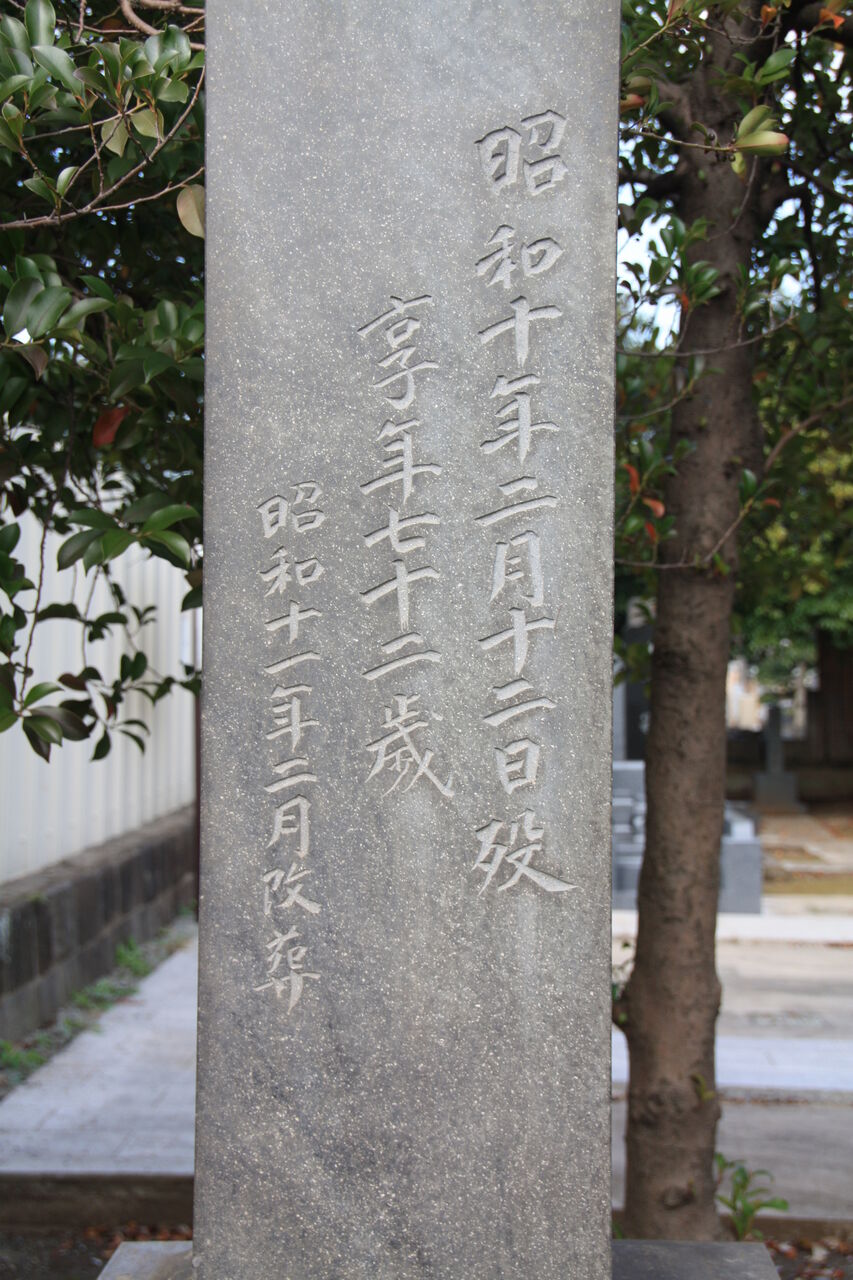 昭和十年二月十二日歿
享年七十二歳
昭和十一年二月改葬